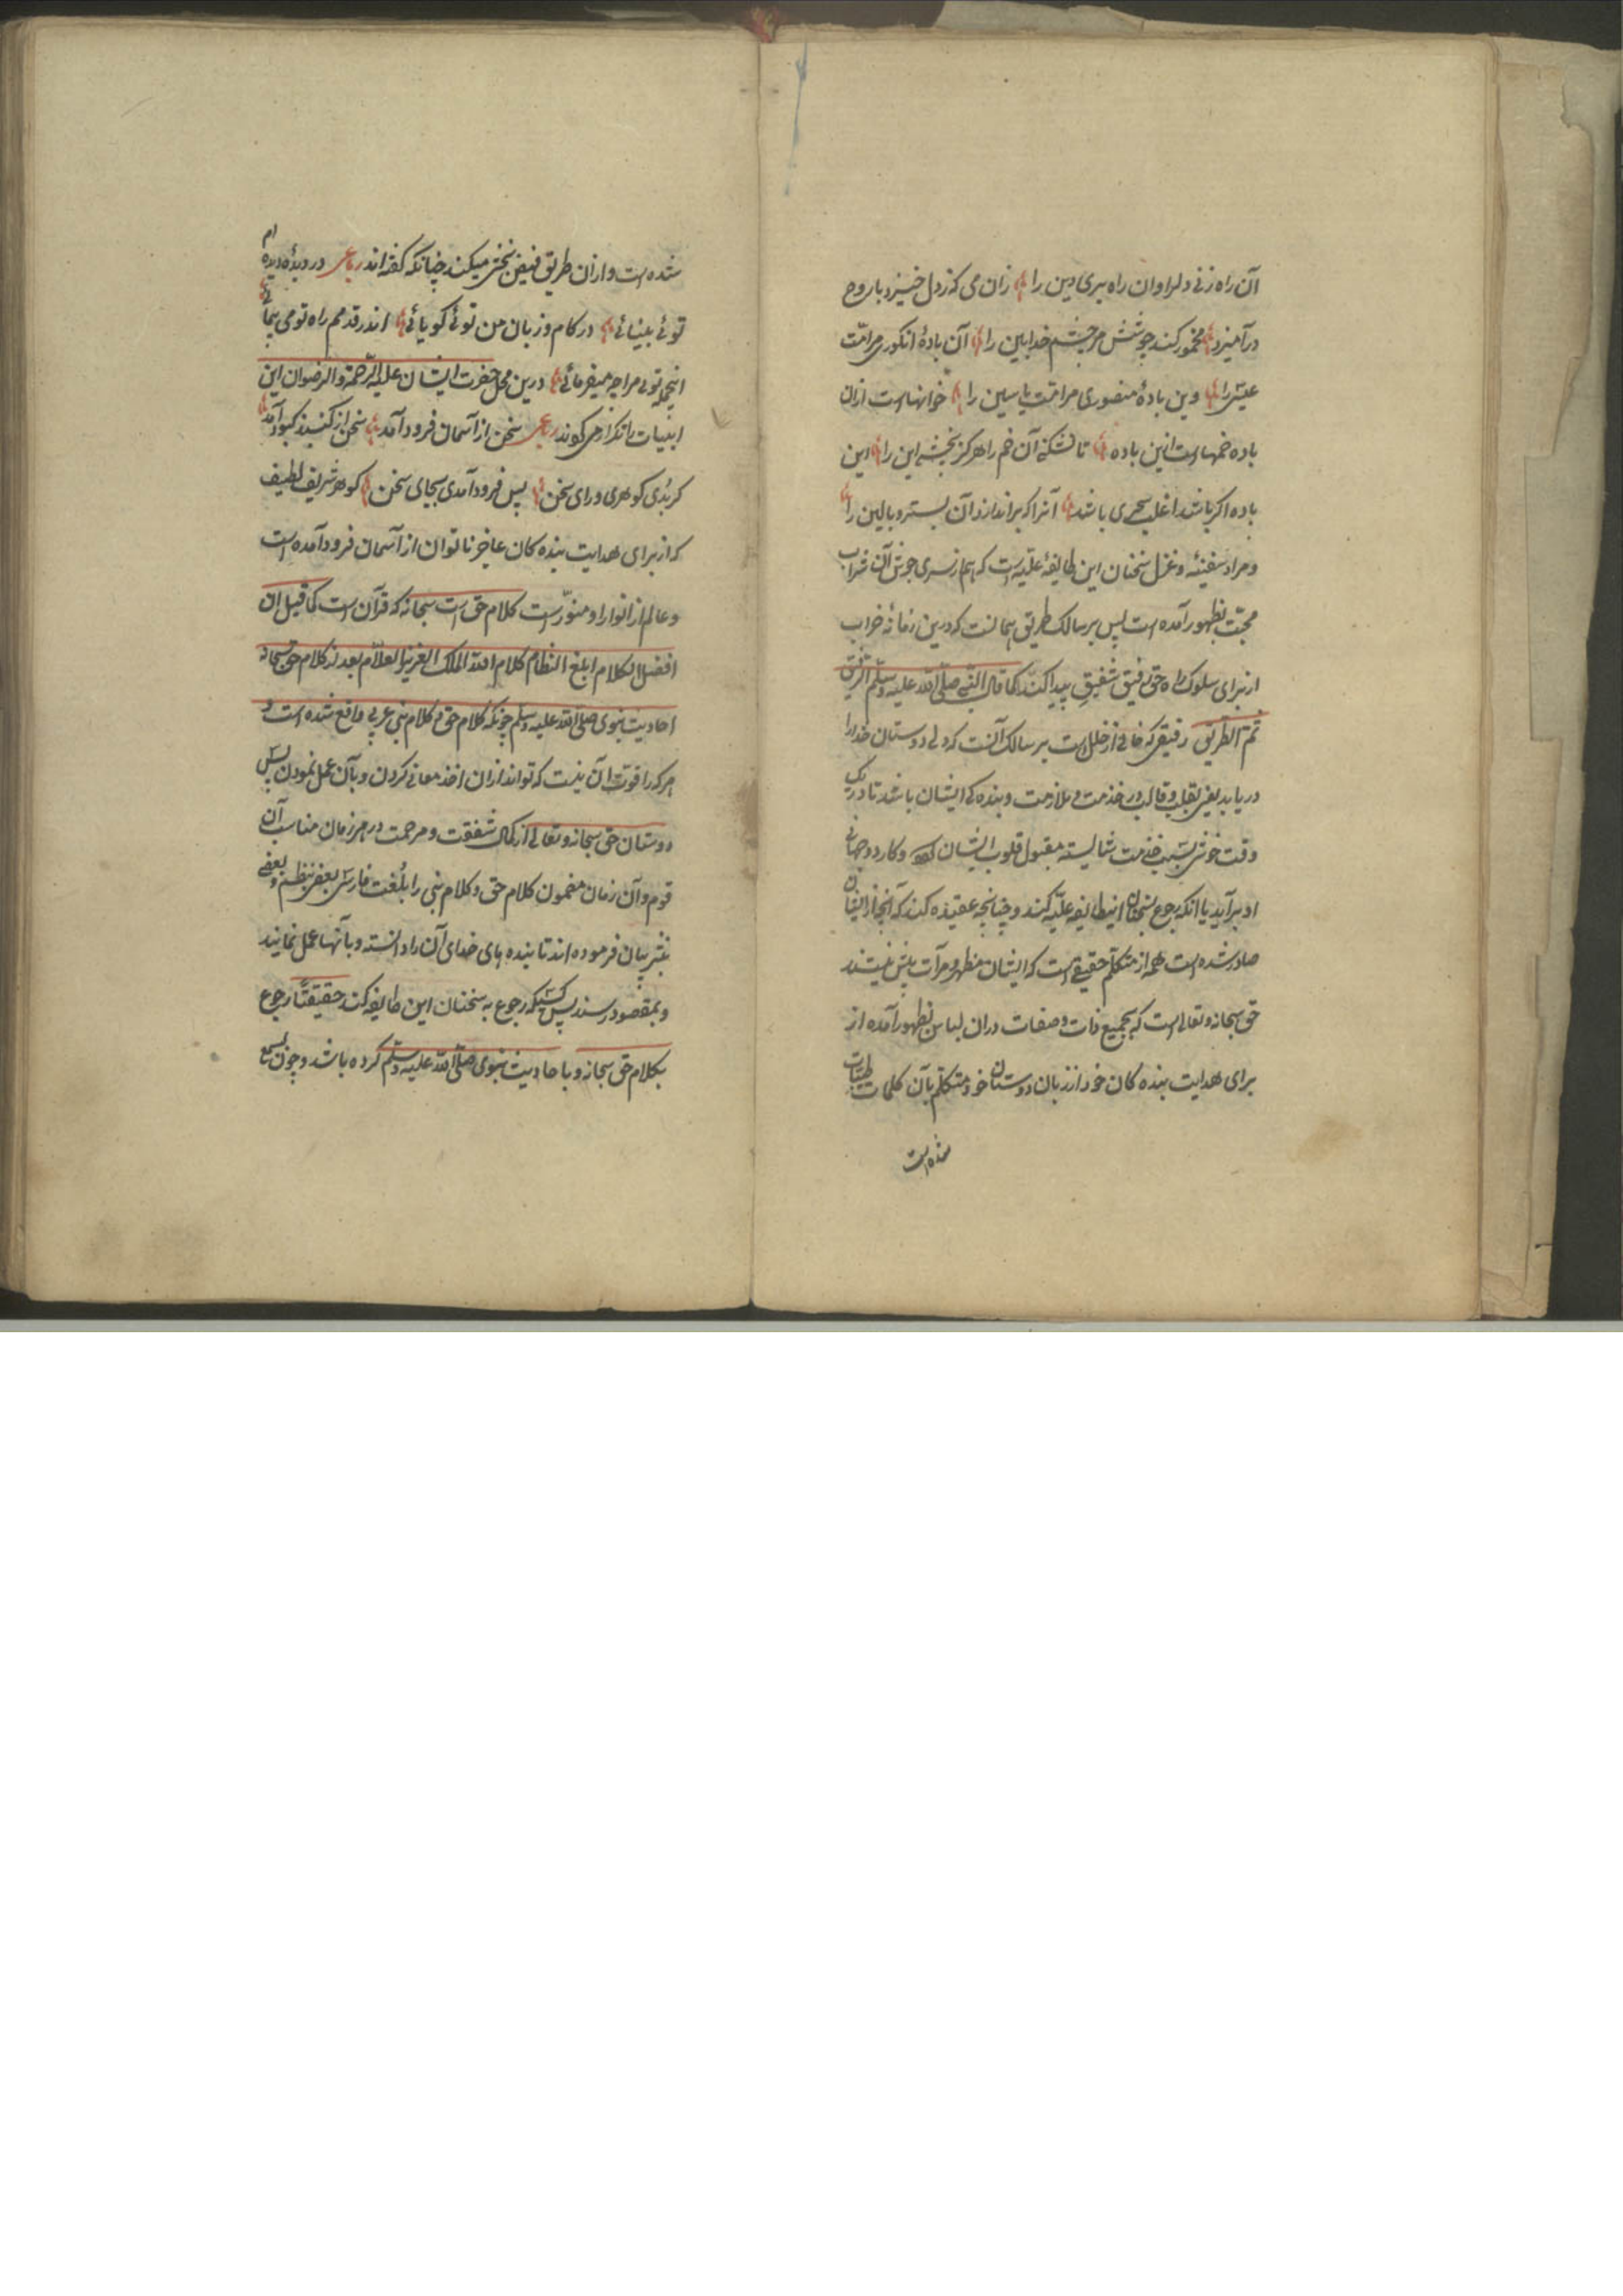 آن راه زنی دل را وان راه بری دین را زان می که ز دل خیزد با روح
درآمیزد مخمور کند جوشش مر چشم خدابین را آن بادهٔ انگوری مر امّت
عیسی را وین بادهٔ منصوری مر امّت یاسین را خمهاست ازان
باده خمهاست ازین باده تا نشکنی آن خم را هرگز نچشی این را این
باده اکر باشد اغلب سحری باشد آنرا که براندازد آن بستر و بالین را
و مراد سفینهٔ و غزل سخنان این طایفهٔ علّیه است که هم از سری جوش آن شراب
محبّت بظهور آمده است پس بر سالک طریق همانست که درین زمانهٔ خراب
از برای سلوک راه حق رفیق شفیق پیدا کند کما قال النّبی صلّی الله علیه وسلّم الرّفیق
ثمّ الطّریق رفیقی که خالی از خلل است بر سالک آنست که دلی دوستان خدا را
دریابد یعنی بقلب و قالب در خدمت و ملازمت و بنده کی ایشان باشد تا در یک
وقت خوش بسبب خدمت شایسته مقبول قلوب ایشان و کار دو جهانی
او برآید یا انکه رجوع بسخنان اینطایفه علیّه کند و چنانچه عقیده کند که آنچه از ایشان
صادر شده است همه از متکلّم حقیقی است که ایشان مظهر و مرآت بیش نیستند
حق سبحانه وتعالی است که بجمیع ذات وصفات دران لباس بظهور آمده از
برای هدایت بنده کان خود از زبان دوستان خود متکلّم بآن کلمات طیّبات
شده است
شده است و ازان طریق فیض بخشی میکند چنانکه کفته اند رباعی در دیدهٔ دیده ام
توئی بینائی در کام و زبان من توئی کویائی اندر قدمم راه تو می پیمائی
اینجمله توئی مرا چه میفرمائی درین محل حضرت ایشان علیه الرّحمة والرضوان این
ابیات را تکرار می کوند رباعی سخن از آسمان فرود آمد سخن از کنبد کبود آمد
کر بدی کوهری ورای سخن پس فرود آمدی بجای سخن کوهر شریف لطیف
که از برای هدایت بنده کان عاجز ناتوان از آسمان فرود آمده است
و عالم از انوار او منوّر است کلام حق است سبحانه که قرآن است کما قیل ان
افضل الکلام ابلغ النظام کلام الله الملک العزیز العلّام بعد از کلام حق سبحانه
احادیث نبوی صلّی الله علیه وسلّم چونکه کلام حق و کلام نبی عربی واقع شده است و
هر که را قوّت آن نیست که تواند ازان اخذ معانی کردن و بآن عمل نمودن پس
دوستان حق سبحانه وتعالی از کمال شفقت و مرحمت در هر زمان مناسب آن
قوم و آن زمان مضمون کلام حق و کلام نبی را بلُغت فارسی بعضی بنظم و بعضی
بنثر بیان فرموده اند تا بنده های خدای آن را دانسته و بآنها عمل نمایند
و بمقصود رسند پس کسیکه رجوع به سخنان این طایفه کند حقیقتاً رجوع
بکلام حق سبحانه و باحادیث نبوی صلّی الله علیه وسلّم کرده باشد و چون